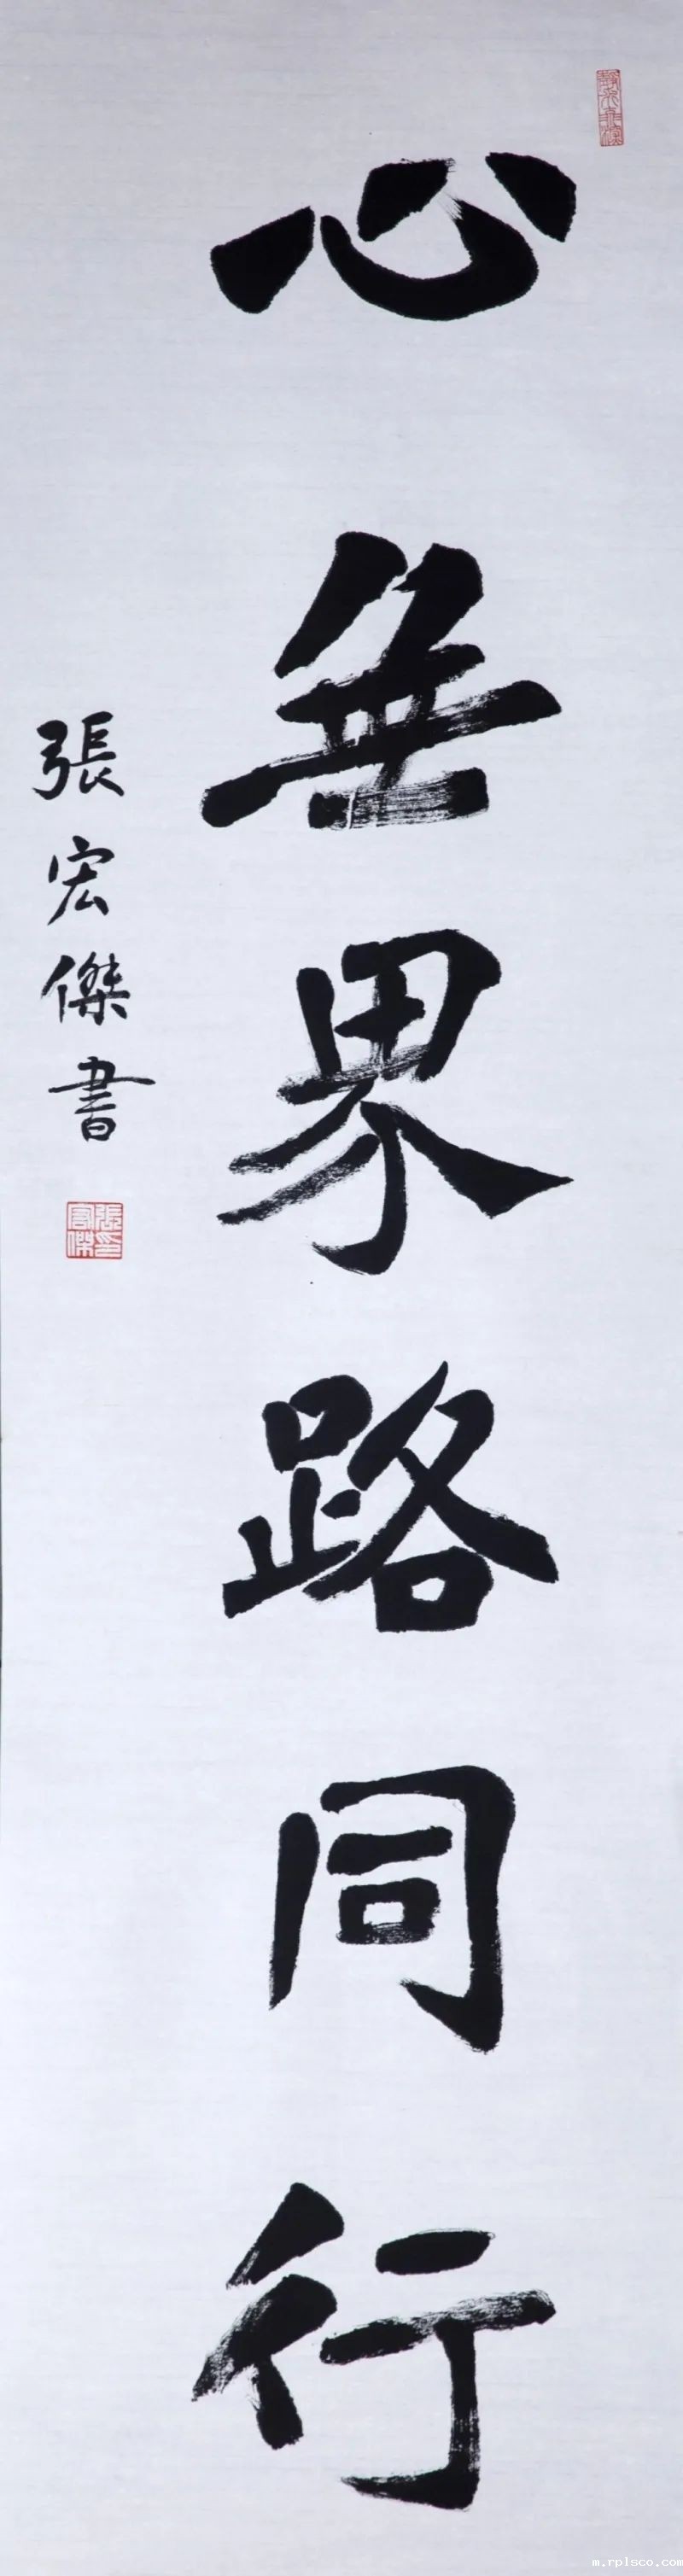 心無界路同行
張宏傑書
張宏傑印
m.rplsco.com